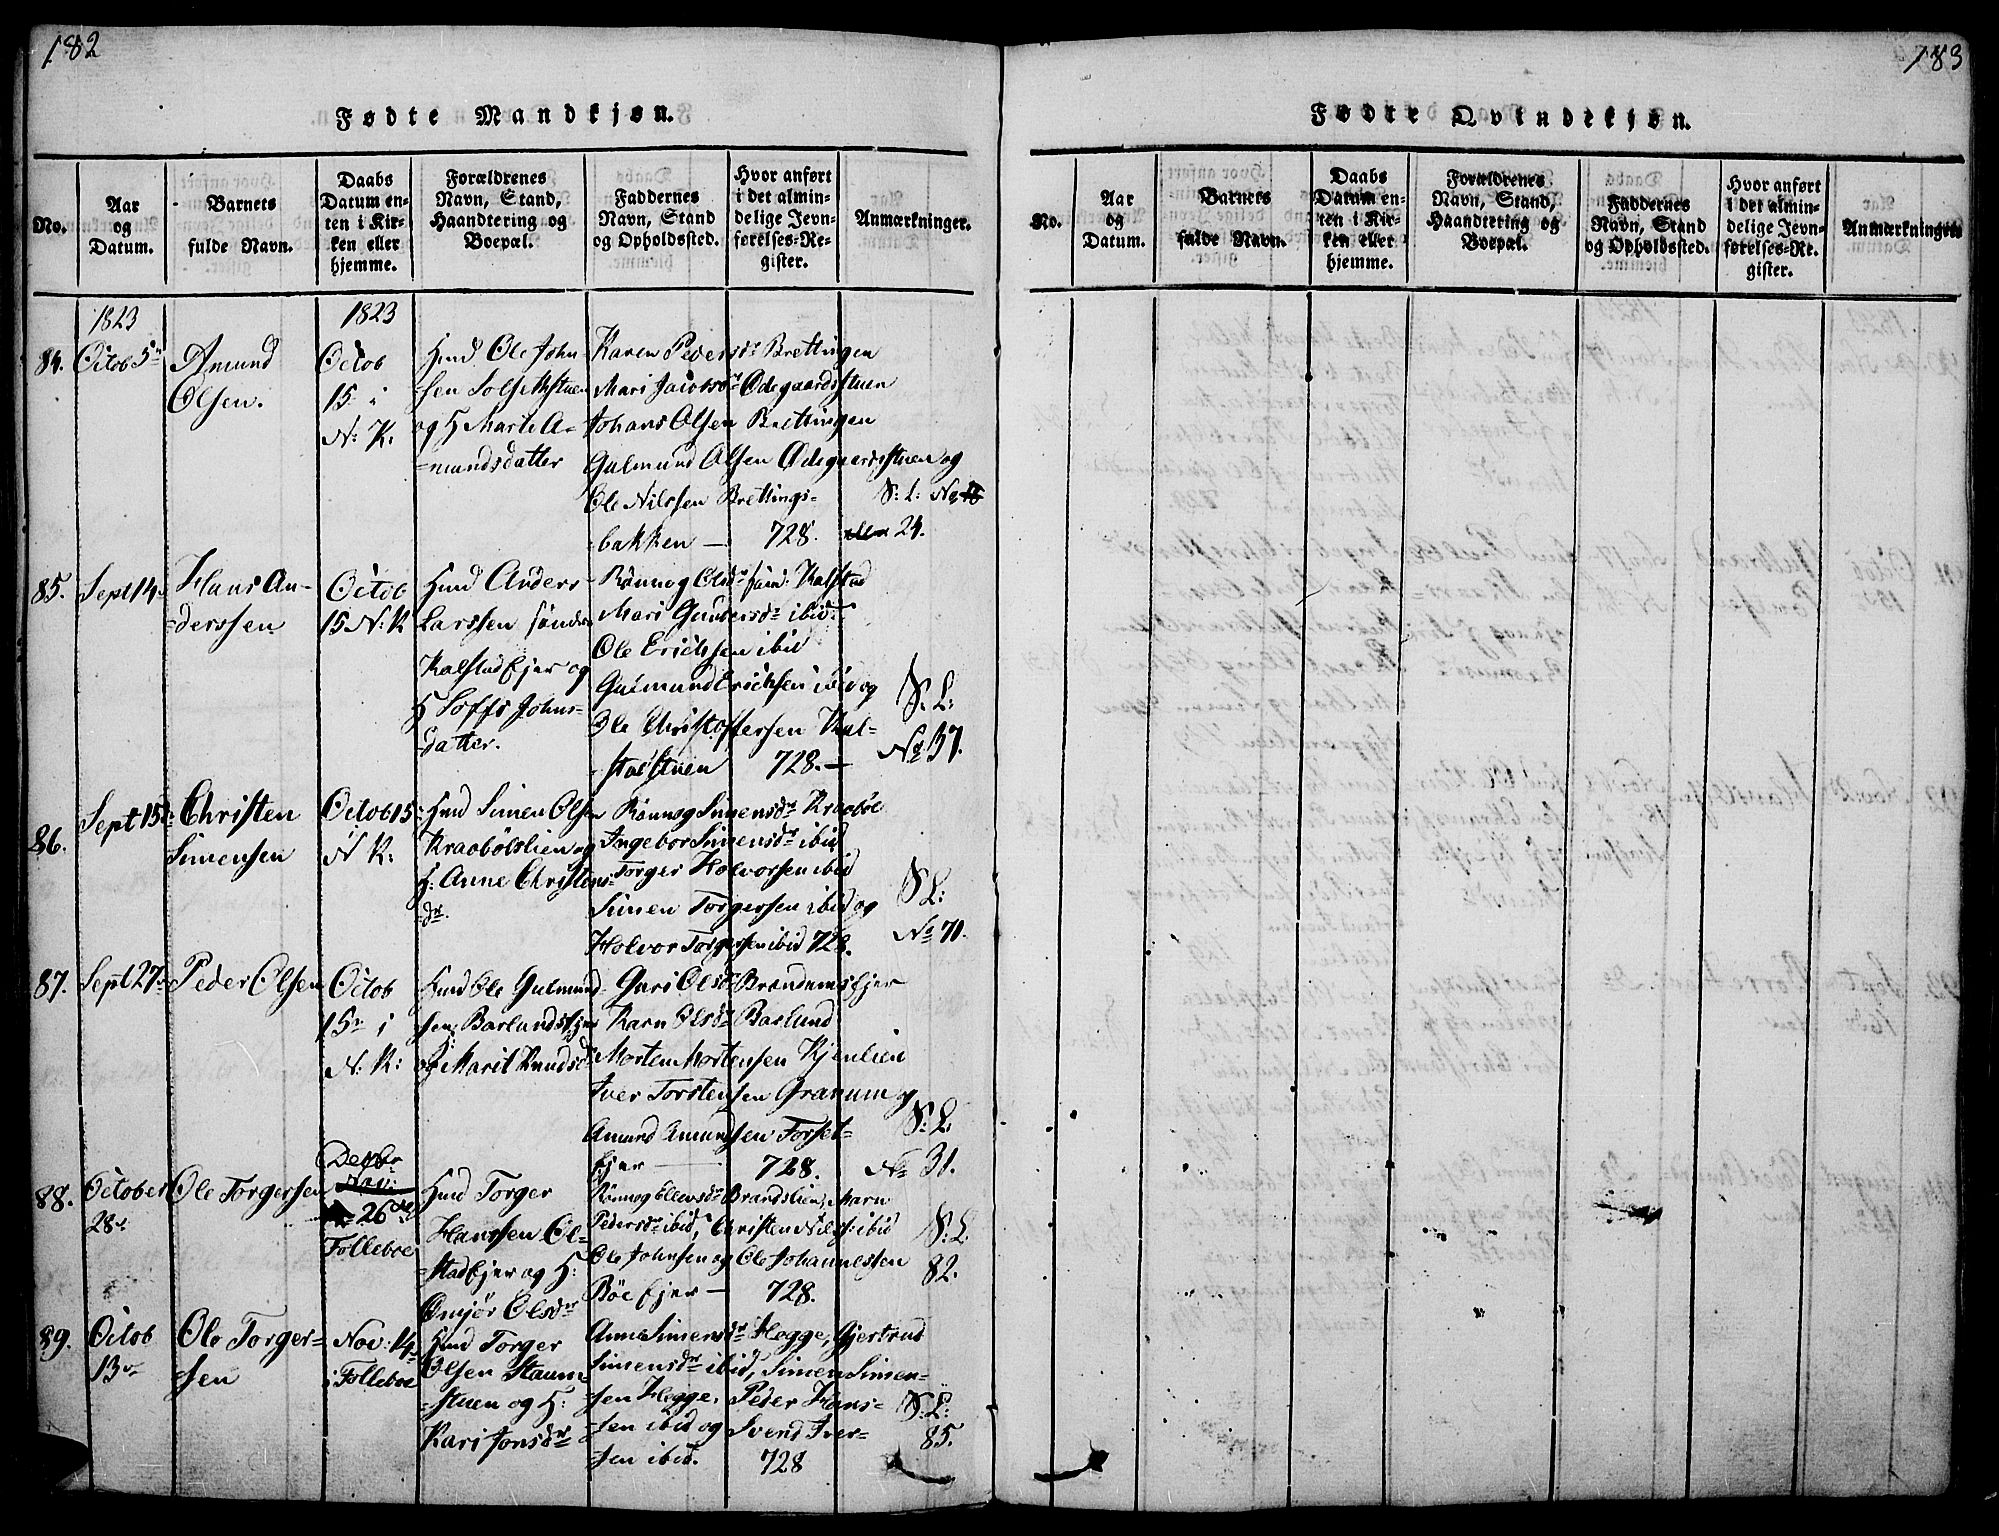 182
Fødte Mandkjøn.
No.
Aar
og
Datum.
Barnets
fulde Navn.
Daabs
Datum en-
ten i Kir-
ken eller
hjemme.
Forældrenes
Navn, Stand,
Haandtering og
Boepæl.
Faddernes
Navn, Stand
og Opholdssted.
Hvor anført
i det almin-
delige Jevn-
førelses-Re-
gister.
Anmærkninger.
1823
84.
Octob 5
Amund
Olsen.
1823
Octob
15 i
N: K:
Hmd Ole John-
sen Solsethstuen
og H Marte A-
mundsdatter
Karen Pedersdr Brettingen
Mari Jacobsdr Ødegaardsstuen
Johans Olsen Brettingen
Gulmund Olsen Ødegaardsstuen og
Ole Nilssen Brettings-
bakken —
728.
S: L: No
24.
85.
Sept 14
Hans An-
derssen
Octob
15 N: K
Hmd Anders
Larssen sønder
Kalstad Ejer og
H Soffi Johns-
datter.
Rønnog Olsdr søn: Kalstad
Mari Gundersdr ibid:
Ole Erichsen ibid
Gulmund Erichsen ibid og
Ole Christoffersen Kal-
stadstuen
728. —
S. L:
No 37.
86.
Sept 15
Christen
Simensen
Octob 15
N K:
Hmd Simen Olsen
Kraabølslien og
H: Anne Christens-
dr.
Rønnog Simensdr Kraabøe
Ingebor Simensdr ibid
Torger Holvorsen ibid
Simen Torgersen ibid og
Holvor Torgersen ibid 728.
S L:
No 71.
87.
Sept 27
Peder Olsen
Octob
15 i
N: K:
Hmd Ole Gulmund-
sen Barlunds Ejer
og H Marit Knudsdr
Guri Olsdr Brændums Ejer
Karn Olsdr Baslund
Morten Mortensen Kjenlien
Iver Torstensen Granum og
Amund Amundsen Forset-
Ejer —
728.
S: L
No 31.
88.
October
28
Ole Torgersen
Decbr
Nov:
26
Folleboe
Hmd Torger
Hanssen Ol-
stad Ejer og H:
Omjør Olsdr
Rønnog Ellevsdr Brandslien, Marn
Pedersdr ibid, Christen Nils: ibid
Ole Johnsen og Ole Johannessen
Bøe Ejer —
728.
S: L
82.
89.
Octob
13
Ole Torger-
sen
Nov: 14
i Folleboe
Hmd Torger
Olsen Staum-
stuen og H:
Kari Jonsdr
Anne Simensdr Hogge, Gjertrud
Simensdr ibid, Simen Simen-
sen Hogge, Peder Hans-
sen ibid og Svend Iver-
sen ibid.
728
S: L:
85.
183
Fødte Qvindekjøn.
No.
Aar
og
Datum.
Barnets
fulde Navn.
Daabs
Datum en-
ten i Kir-
ken eller
hjemme.
Forældrenes
Navn, Stand,
Haandtering og
Boepæl.
Faddernes
Navn, Stand
og Opholdssted.
Hvor anført
i det almin-
delige Jevn-
førelses-Re-
gister.
Anmærkninger.